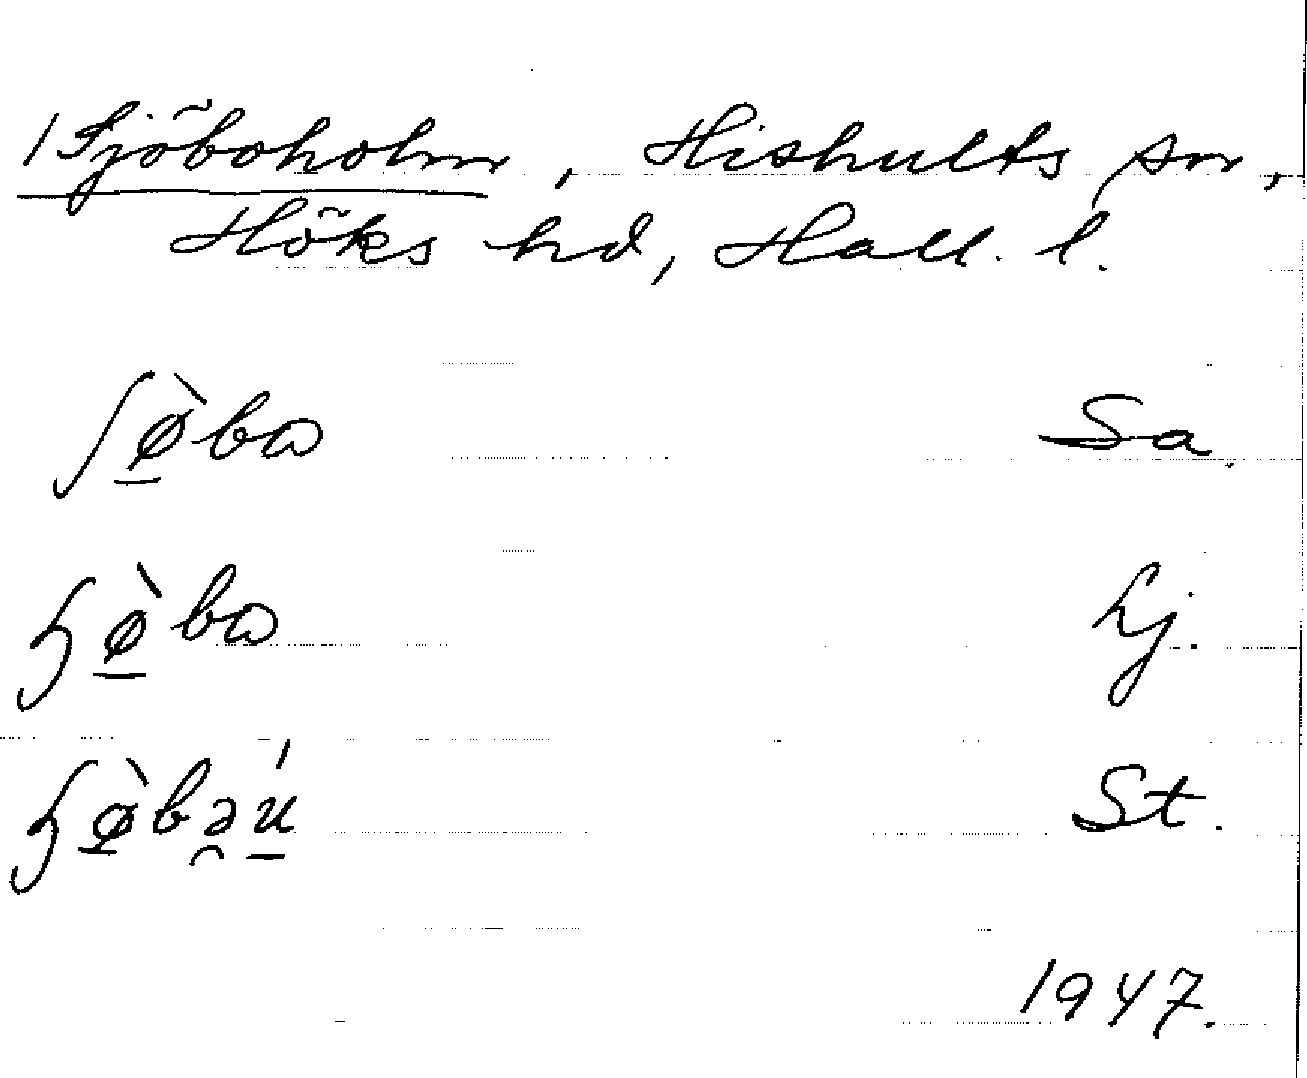 /Sjöboholm, Hishults sn,
Höks hd, Hall. l.
ʃø̠̀bɷ Sa.
ɧø̠̀bɷ Lj.
ɧø̠̀bə̯ú̠ St.
1947.